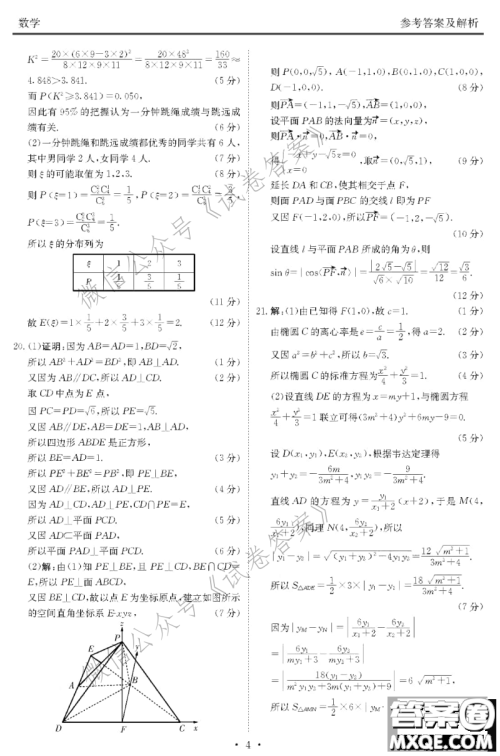 数学
参考答案及解析
K² = 20×(6×9−3×2)² / 8×12×9×11 = 20×48² / 8×12×9×11 = 160/33 ≈
4.848>3.841. (5分)
而 P(K²≥3.841)=0.050,
因此有95%的把握认为一分钟跳绳成绩与跳远成
绩有关. (6分)
(2)一分钟跳绳和跳远成绩都优秀的同学共有6人,
其中男同学2人,女同学4人. (7分)
则ξ的可能取值为1,2,3. (8分)
所以ξ的分布列为
ξ 1 2 3
P 1/5 3/5 1/5
(11分)
故 E(ξ)=1×1/5+2×3/5+3×1/5=2. (12分)
20.(1)证明:因为AB=AD=1,BD=√2,
所以AB²+AD²=BD²,即AB⊥AD. (1分)
又因为AB∥DC,所以AD⊥CD. (2分)
取CD中点为E点,
因PC=PD=√6,所以PE=√5.
又因AB∥DE,AB=DE=1,AB⊥AD,
所以四边形ABDE是正方形,
所以BE=AD=1. (3分)
所以PE²+BE²=PB²,即PE⊥BE,
又因AD∥BE,所以AD⊥PE. (4分)
因为AD⊥CD,AD⊥PE,CD∩PE=E,
所以AD⊥平面PCD. (5分)
又因AD⊂平面PAD,
所以平面PAD⊥平面PCD. (6分)
(2)解:由(1)知PE⊥BE,且PE⊥CD,BE∩CD=
E,所以PE⊥面ABCD,
又因BE⊥CD,故以点E为坐标原点,建立如图所示
的空间直角坐标系E-xyz, (7分)
z
P
E
y
A
B
D
F
C
x
则P(0,0,√5),A(−1,1,0),B(0,1,0),C(1,0,0),
D(−1,0,0). (8分)
则PA=(−1,1,−√5),AB=(1,0,0),
设平面PAB的法向量为n=(x,y,z),
则PA·n=0,AB·n=0,
x=0
取n=(0,√5,1), (9分)
延长DA和CB,使其相交于点F,
则面PAD与面PBC的交线l即为PF
又因F(−1,2,0),所以PF=(−1,2,−√5).
(10分)
设直线l与平面PAB所成的角为θ,则
sin θ=|cos⟨PF,n⟩|=|2√5−√5|/√6×√10=√12/12=√3/6.
(12分)
21.解:(1)由已知得F(1,0),故c=1. (1分)
由椭圆C的离心率是e=c/a=1/2,得a=2. (2分)
又因a²=b²+c²,所以b=√3. (3分)
所以椭圆C的标准方程为x²/4+y²/3=1. (4分)
(2)设直线DE的方程为x=my+1,与椭圆方程
x²/4+y²/3=1联立可得(3m²+4)y²+6my−9=0.
(5分)
设D(x₁,y₁),E(x₂,y₂),根据韦达定理得
y₁+y₂=−6m/3m²+4,y₁y₂=−9/3m²+4.
直线AD的方程为y=y₁/x₁+2(x+2),于是M(4,
6y₁/x₁+2),同理N(4,6y₂/x₂+2),所以
|y₁−y₂|=√(y₁+y₂)²−4y₁y₂=12√m²+1/3m²+4.
所以S△ADE=1/2×3×|y₁−y₂|=18√m²+1/3m²+4.
(7分)
因为|yM−yN|=|6y₁/x₁+2−6y₂/x₂+2|
=|6y₁/my₁+3−6y₂/my₂+3|
=|18(y₁−y₂)/m²y₁y₂+3m(y₁+y₂)+9|=6√m²+1,
所以S△AMN=1/2×6×|yM
· 4 ·
微信公众号《试卷答案》
微信公众号《试卷答案》
答案圈
MXQE.COM